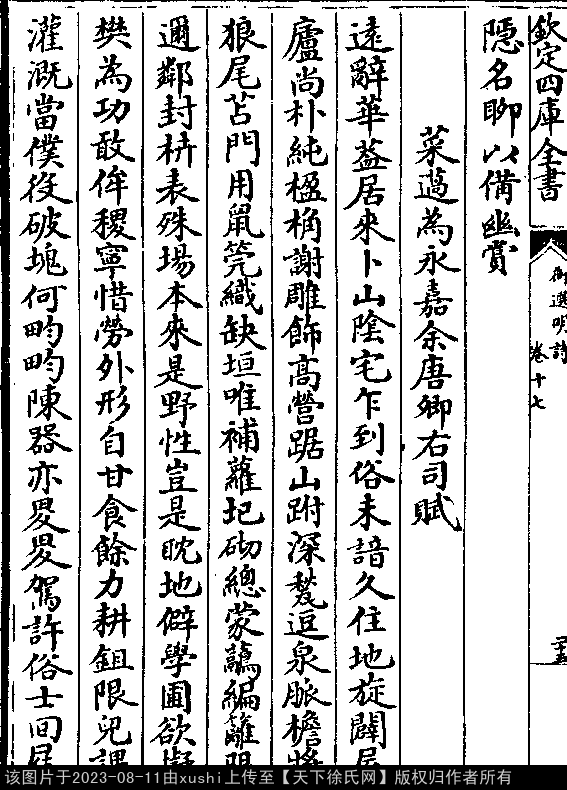 欽定四庫全書
御選明詩 卷十七
二十五
隠名聊以備幽賞
菜薖為永嘉余唐卿右司賦
逺辭華葢居來卜山陰宅乍到俗未諳久住地旋闢
廬尚朴純楹桷謝雕飾髙營踞山跗深甃逗泉脈檐
狼尾苫門用鼠筦織缺垣唯補蘿圮砌緫蒙虉編籬
邇鄰封枿表殊場本來是野性豈是耽地僻學圃欲
樊為功敢侔稷寧惜勞外形自甘食餘力耕鉏限兒
灌溉當僕役破塊何畇畇陳器亦畟畟駕許俗士回
该图片于2023-08-11由xushi上传至【天下徐氏网】版权归作者所有